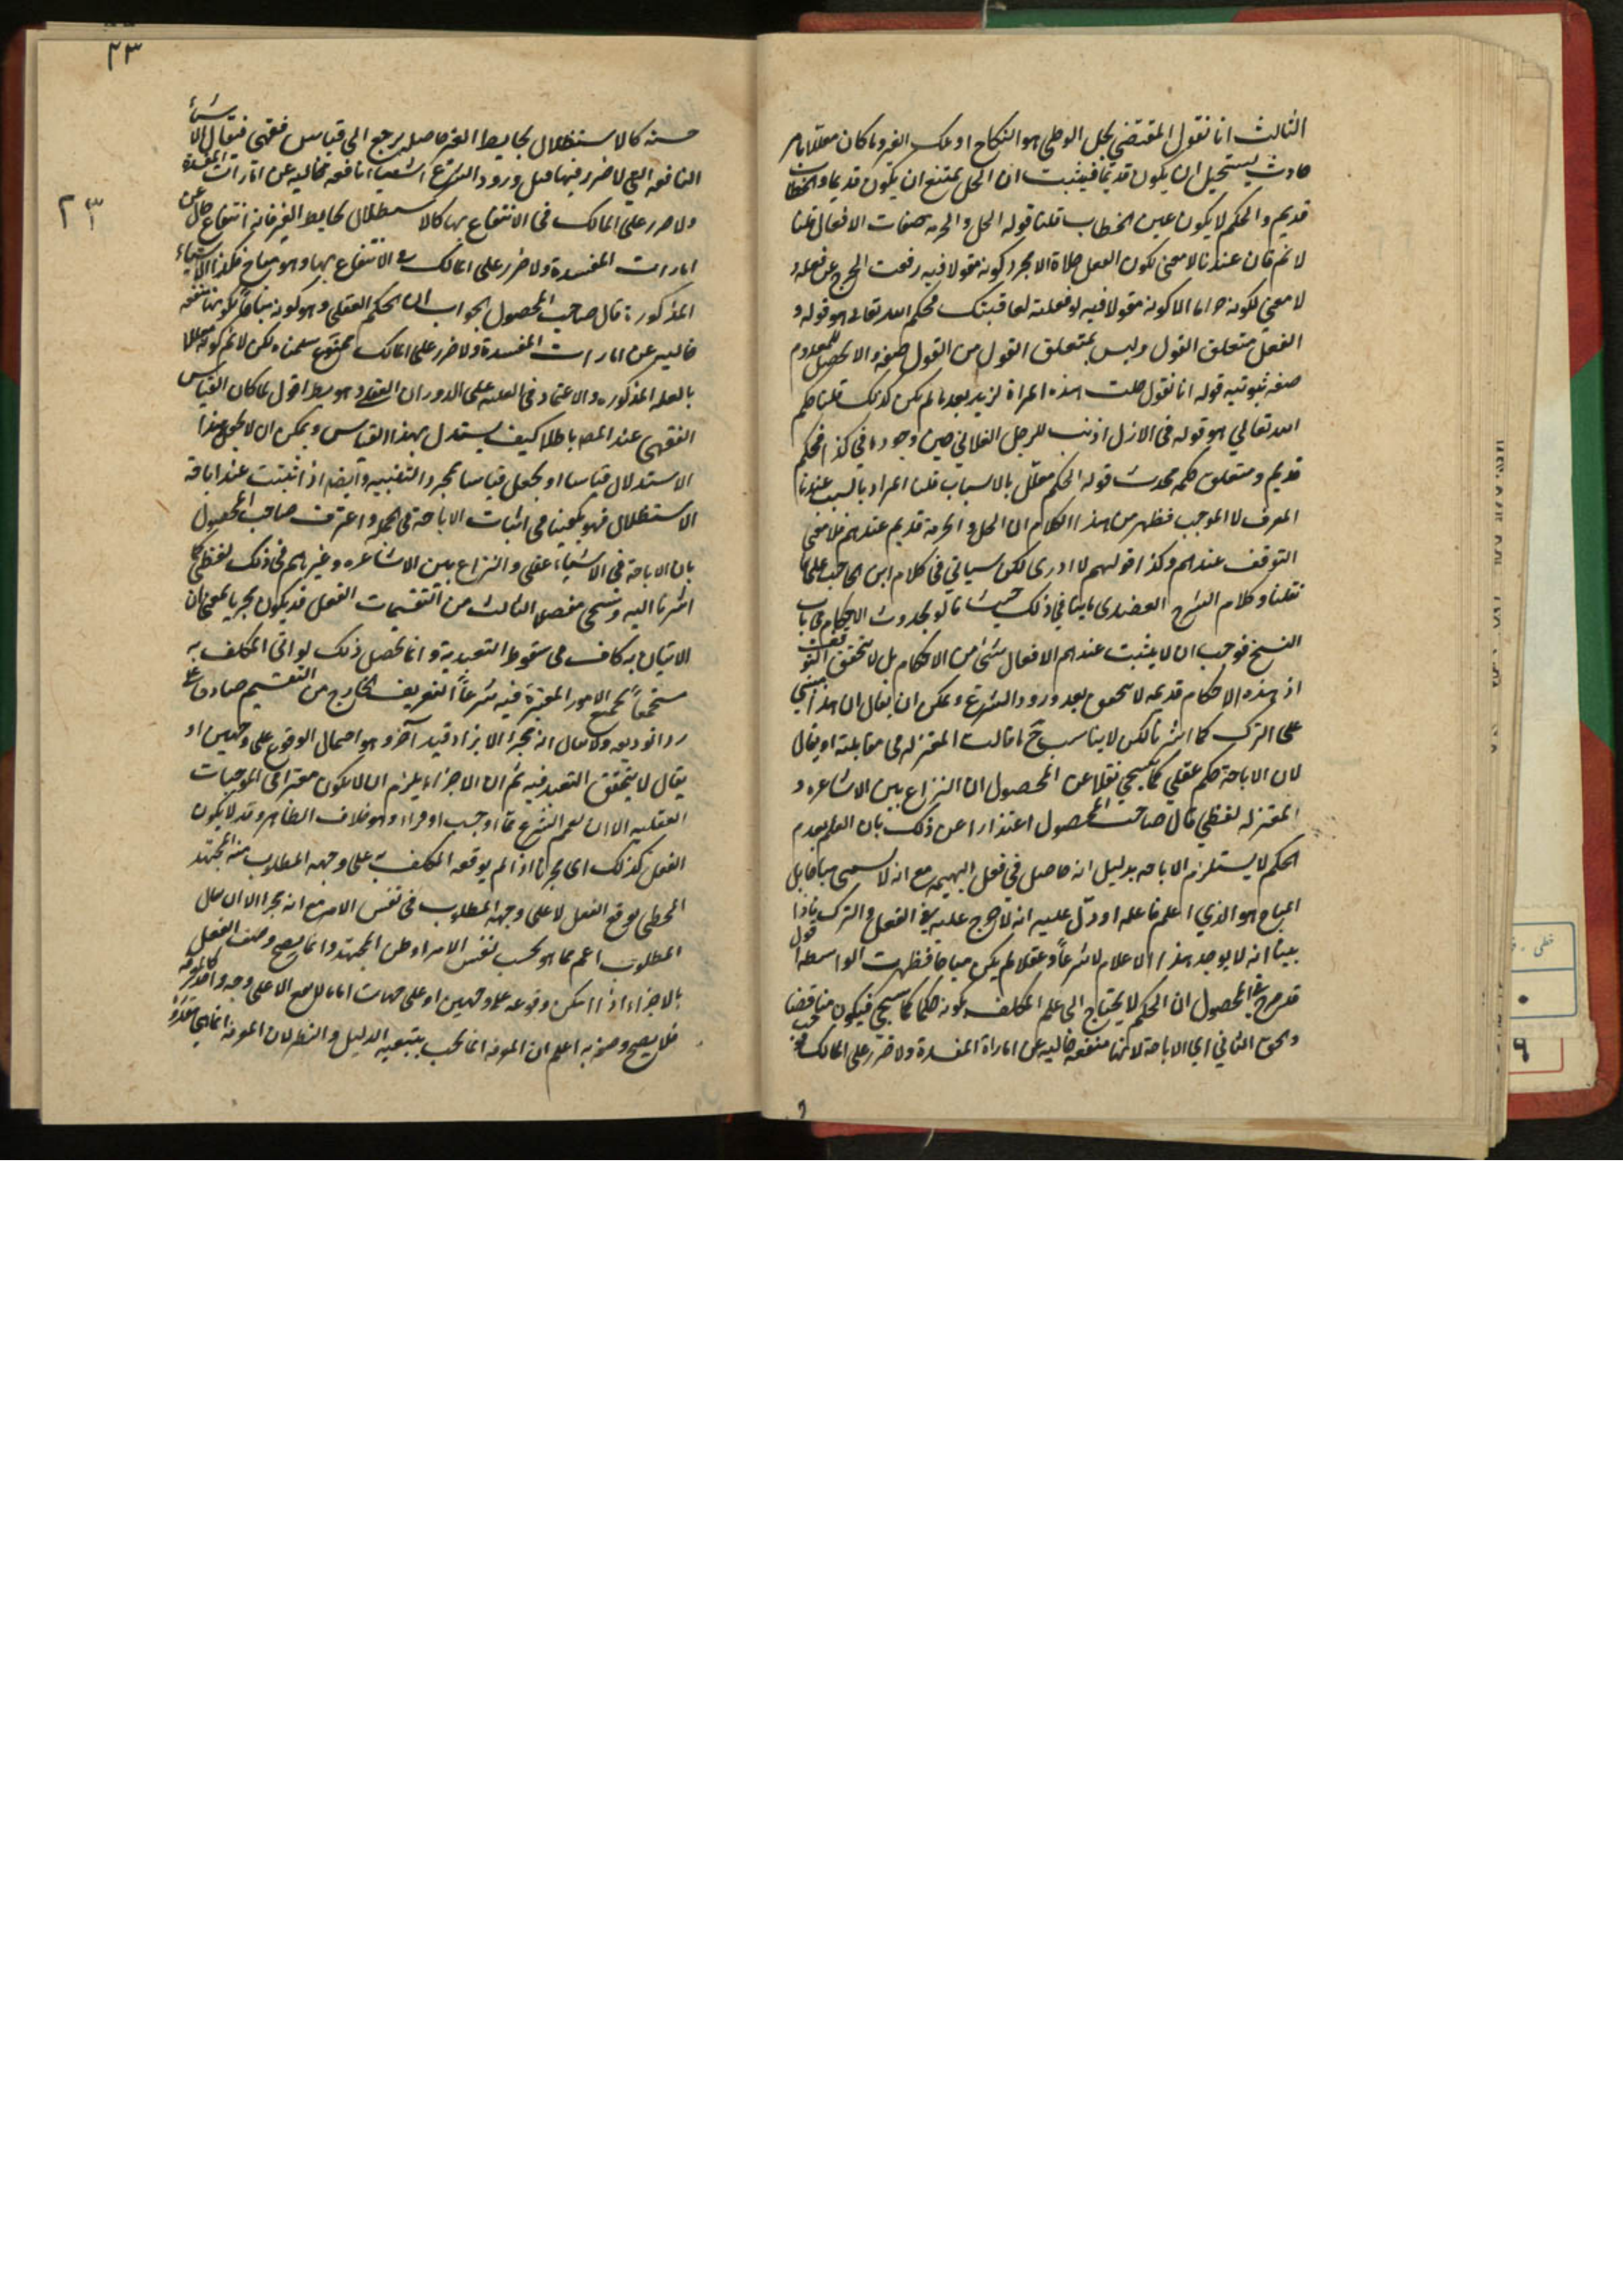 الثالث انا نقول المقتضي لحل الوطي هو النكاح او ملك الغير وما كان معللا بامر
حادث يستحيل ان يكون قديما فيثبت ان الحل يمتنع ان يكون قديما والخطاب
قديم والحكم لا يكون عين الخطاب قلنا قوله الحل والحرمة صفات الافعال قلنا
لا نم فان عندنا لا معنى لكون الفعل حلالا الا مجرد كونه مقولا فيه رفعت الحرج عن فعله و
لا معنى لكونه حراما الا كونه مقولا فيه لو فعلته لعاقبتك فحكم الله تعالى هو قوله و
الفعل متعلق القول وليس لمتعلق القول من القول صفة والا لحصل للمعدوم
صفة ثبوتيه قوله انا نقول حلت هذه المراة لزيد بعد ما لم يكن كذلك قلنا حكم
الله تعالي هو قوله في الازل اذنت للرجل الفلاني حين وجوده في كذا فحكم
قديم ومتعلق حكمه محدث قوله الحكم معلل بالاسباب قلنا المراد بالسبب عندنا
المعرف لا الموجب فظهر من هذا الكلام ان الحل والحرمة قديم عندهم فلا معنى
التوقف عندهم وكذا قولهم لا ادري لكن سياتي في كلام ابن الحاجب على ما
نقلنا وكلام الشرح العضدي ما ينافي ذلك حيث قالوا بحدوث الاحكام في باب
النسخ فوجب ان لا يثبت عندهم الافعال شئ من الاحكام بل لا يتحقق التوقف
اذ هذه الاحكام قديمه لا تتحقق بعد ورود الشرع ويمكن ان يقال ان هذا مبني
على الترك كما اشرنا لكن لا يناسب ح ما قالت المعتزله في مقابلته او يقال
لان الاباحة حكم عقلي كما سيجي نقلا عن المحصول ان النزاع بين الاشاعره و
المعتزله لفظي قال صاحب المحصول اعتذارا عن ذلك بان العلم بعدم
الحكم لا يستلزم الاباحه بدليل انه حاصل في فعل البهيمه مع انه لا يسمى مباحا بل
المباح هو الذي اعلم فاعله او دل عليه انه لا حرج عليه في الفعل والترك فاذا
بينا انه لا يوجد هذا الاعلام لا شرعا وعقلا لم يكن مباحا فظهرت الواسطة اقول
قد صرح في المحصول ان الحكم لا يحتاج الى علم المكلف بكونه حكما كما سيجي فيكون مناقضا
وبحق الثاني اي الاباحة لانها منفعه خاليه عن امارة المفسدة ولا ضرر على المالك فوجب
٢٣
٢٣
حسنه كالاستظلال بحايط الغير حاصله يرجع الى قياس فقهي فيقال الاشياء
النافعه التي لا ضرر فيها قبل ورود الشرع اشياء نافعه خاليه عن امارات المفسدة
ولا ضرر على المالك في الانتفاع بها كالاستظلال بحايط الغير فانه انتفاع خال عن
امارات المفسدة ولا ضرر على المالك في الانتفاع بها وهو مباح فكذا الاشياء
المذكورة قال صاحب المحصول الجواب ان الحكم العقلي وهو كونه مباحا لكونها منفعه
خاليه عن امارات المفسدة ولا ضرر على المالك ممنوع سلمناه لكن لا نم كونه معللا
بالعله المذكوره والاعتماد في العليه على الدوران العقلي وهو يط اقول لما كان القياس
الفقهي عند المص باطلا كيف يستدل بهذا القياس ويمكن ان لا يجعل هذا
الاستدلال قياسا او يجعل قياسا بمجرد التنبيه وايضا اذا ثبتت عنده اباحة
الاستظلال فهو يكفينا في اثبات الاباحة في الجملة واعترف صاحب المحصول
بان الاباحة في الاشياء عقلي والنزاع بين الاشاعره وغيرهم في ذلك لفظي كما
اشرنا اليه وسيجي مفصلا الثالث من التقسيمات الفعل قد يكون مجزيا بمعنى ان
الاتيان به كاف في سقوط التعبد به وانما يحصل ذلك لو اتى المكلف به
مستجمعا لجميع الامور المعتبرة فيه شرعا التعريف الخارج من التقسيم صادق على
رد الوديعه ولا يقال انه يجزا الا بزاد قيد آخر وهو احتمال الوقوع على وجهين او
يقال لا يتحقق التعبد فيه ثم ان الاجزاء يلزم ان لا يكون معتبرا في الموجبات
العقليه الا ان يعمم الشرع عما اوجب او قرره وهو خلاف الظاهر وقد لا يكون
الفعل كذلك اي مجزيا اذا لم يوقعه المكلف به على وجهه المطلوب منه المجتهد
المخطي يوقع الفعل لا على وجهه المطلوب في نفس الامر مع انه يجزا الا ان يقال
المطلوب اعم مما هو بحسب نفس الامر او ظن المجتهد وانما يصح وصف الفعل
بالاجزاء اذا امكن وقوعه على وجهين او على جهات اما ما لا يقع الا على وجه واحد كالمعرفه
فلا يصح وصفه به اعلم ان المعرفه انما تجب بتبعيه الدليل والنظر لان المعرفه انما هي